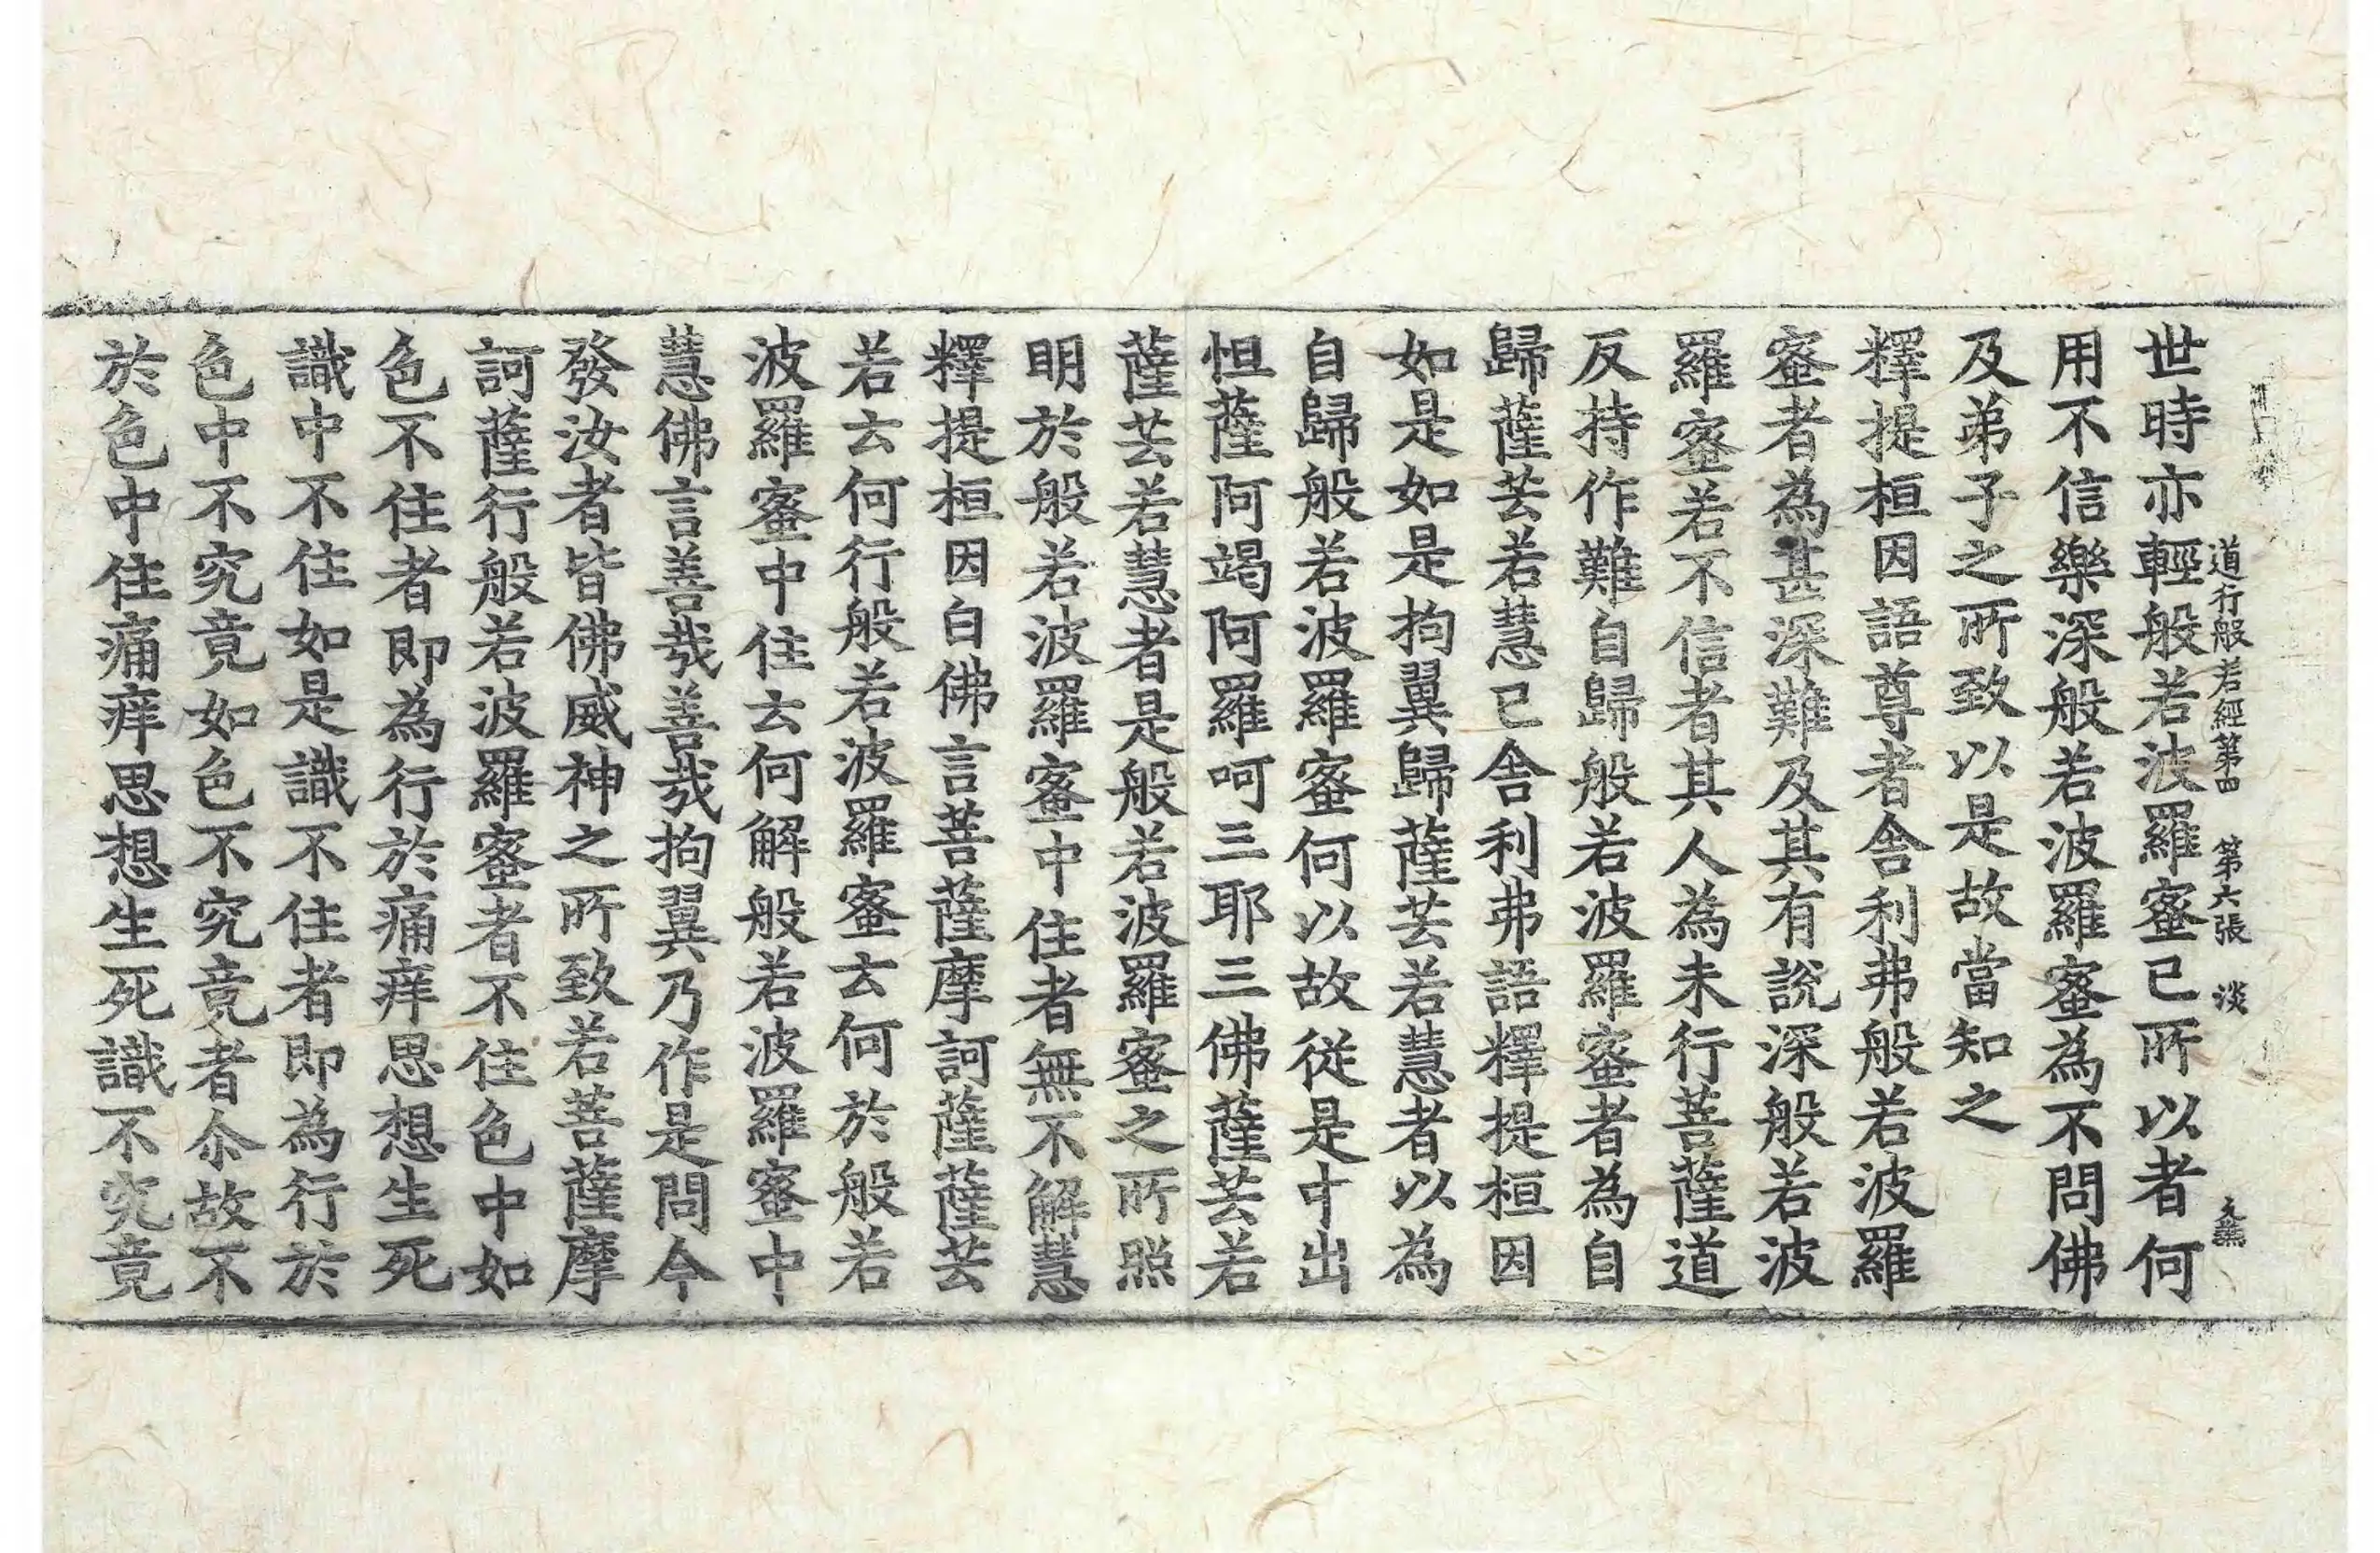 道行般若經第四 第六張 淡
世時亦輕般若波羅蜜已所以者何
用不信樂深般若波羅蜜為不問佛
及弟子之所致以是故當知之
釋提桓因語尊者舍利弗般若波羅
蜜者為甚深難及其有說深般若波
羅蜜若不信者其人為未行菩薩道
反持作難自歸般若波羅蜜者為自
歸薩芸若慧已舍利弗語釋提桓因
如是如是拘翼歸薩芸若慧者以為
自歸般若波羅蜜何以故從是中出
怛薩阿竭阿羅呵三耶三佛薩芸若
薩芸若慧者是般若波羅蜜之所照
明於般若波羅蜜中住者無不解慧
釋提桓因白佛言菩薩摩訶薩薩芸
若云何行般若波羅蜜云何於般若
波羅蜜中住云何解般若波羅蜜中
慧佛言善哉善哉拘翼乃作是問今
發汝者皆佛威神之所致若菩薩摩
訶薩行般若波羅蜜者不住色中如
色不住者即為行於痛痒思想生死
識中不住如是識不住者即為行於
色中不究竟如色不究竟者尒故不
於色中住痛痒思想生死識不究竟